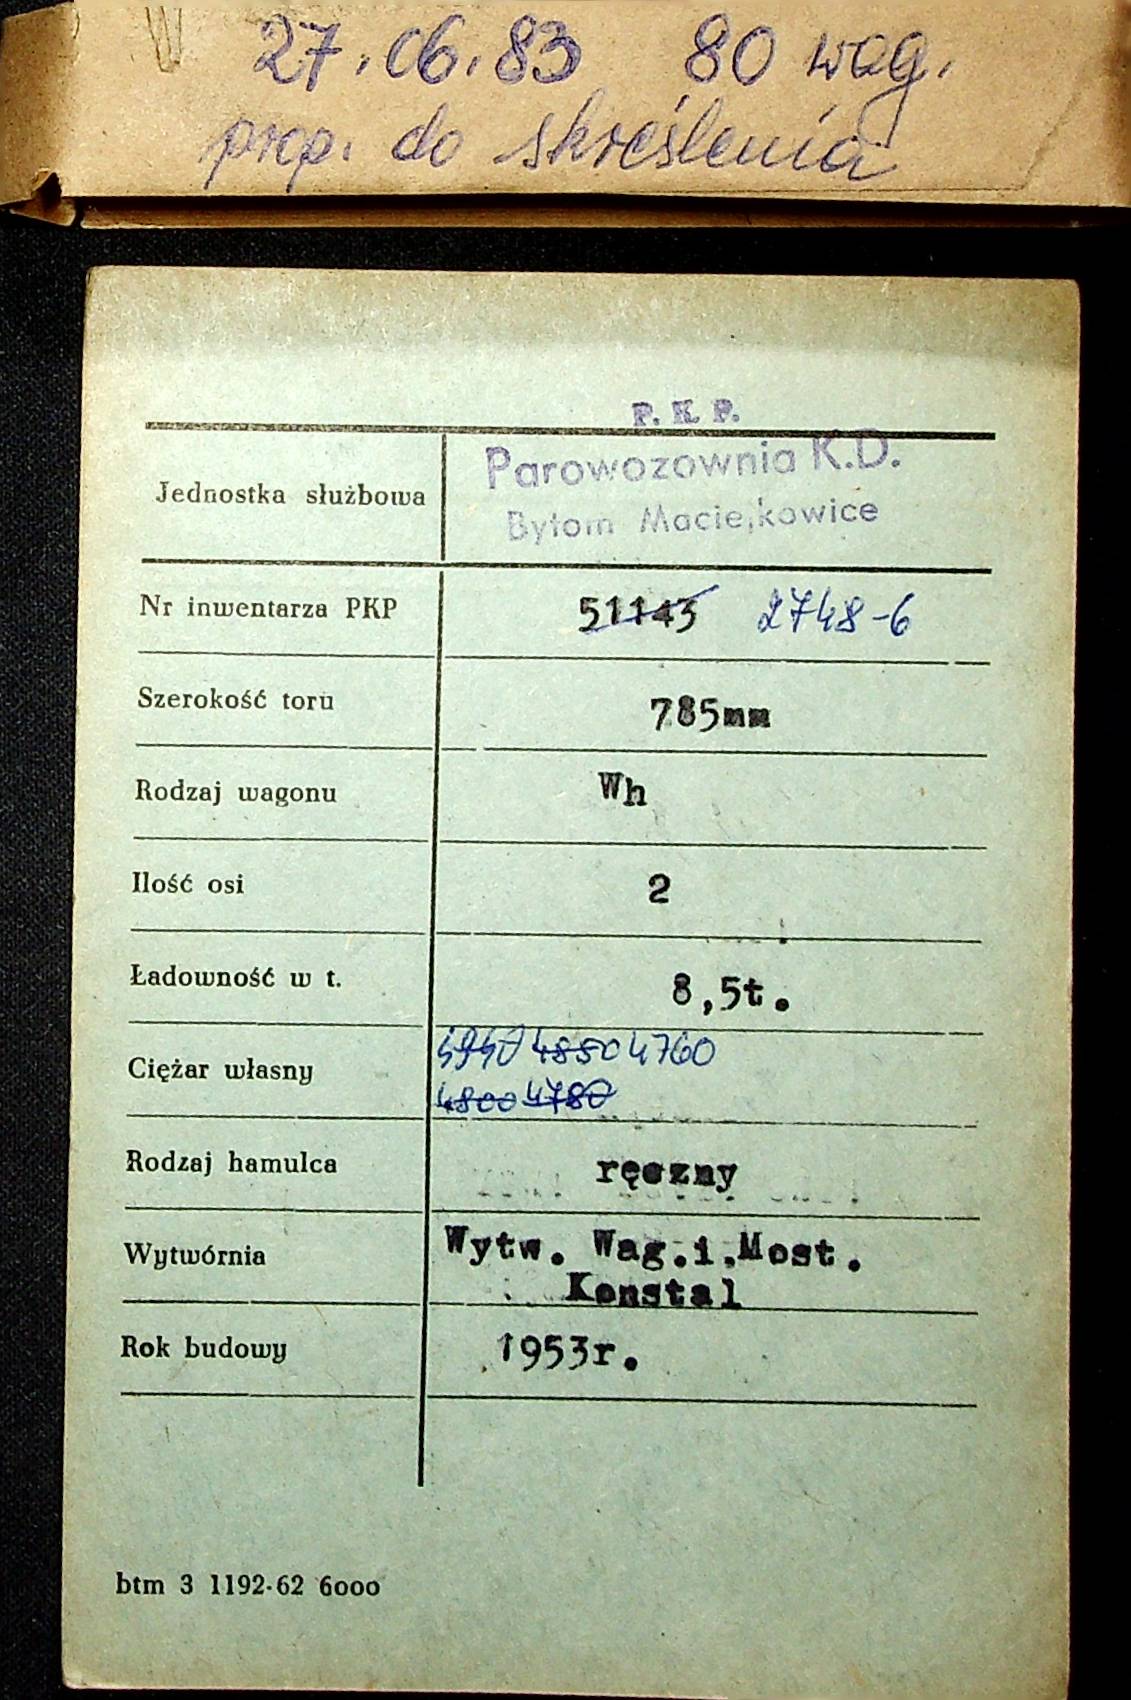 27.06.83 80 wag.
prop. do skreślenia
P. K. P.
Parowozownia K.D.
Bytom Maciejkowice
Jednostka służbowa
Nr inwentarza PKP 51143 2748-6
Szerokość toru 785mm
Rodzaj wagonu Wh
Ilość osi 2
Ładowność w t. 8,5t.
4940 4850 4760
Ciężar własny
4800 4780
Rodzaj hamulca ręczny
Wytwórnia Wytw. Wag.i.Most.
Konstal
Rok budowy 1953r.
btm 3 1192-62 6000